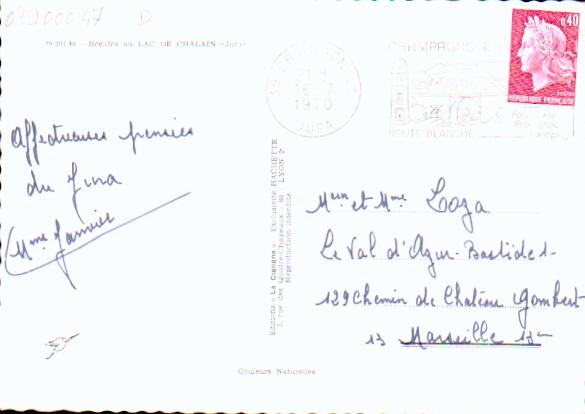 03900047 D
39.201.46 - Régates au LAC DE CHALAIN (Jura)
Affectueuses pensées
du Jura
Mme Janvier
Editions « La Cigogne » - Exclusivité HACHETTE
3, rue des Quatre-Chapeaux - 69 LYON 2e
Reproduction interdite
Couleurs Naturelles
39 CHAMPAGNOLE
16-7
1970
JURA
CHAMPAGNOLE
ROUTE BLANCHE
0,40
POSTES
REPUBLIQUE FRANÇAISE
Mem et Mme Loza
Le Val d'Azur-Bastide 1-
129 Chemin de Château Gombert
13 Marseille 13em